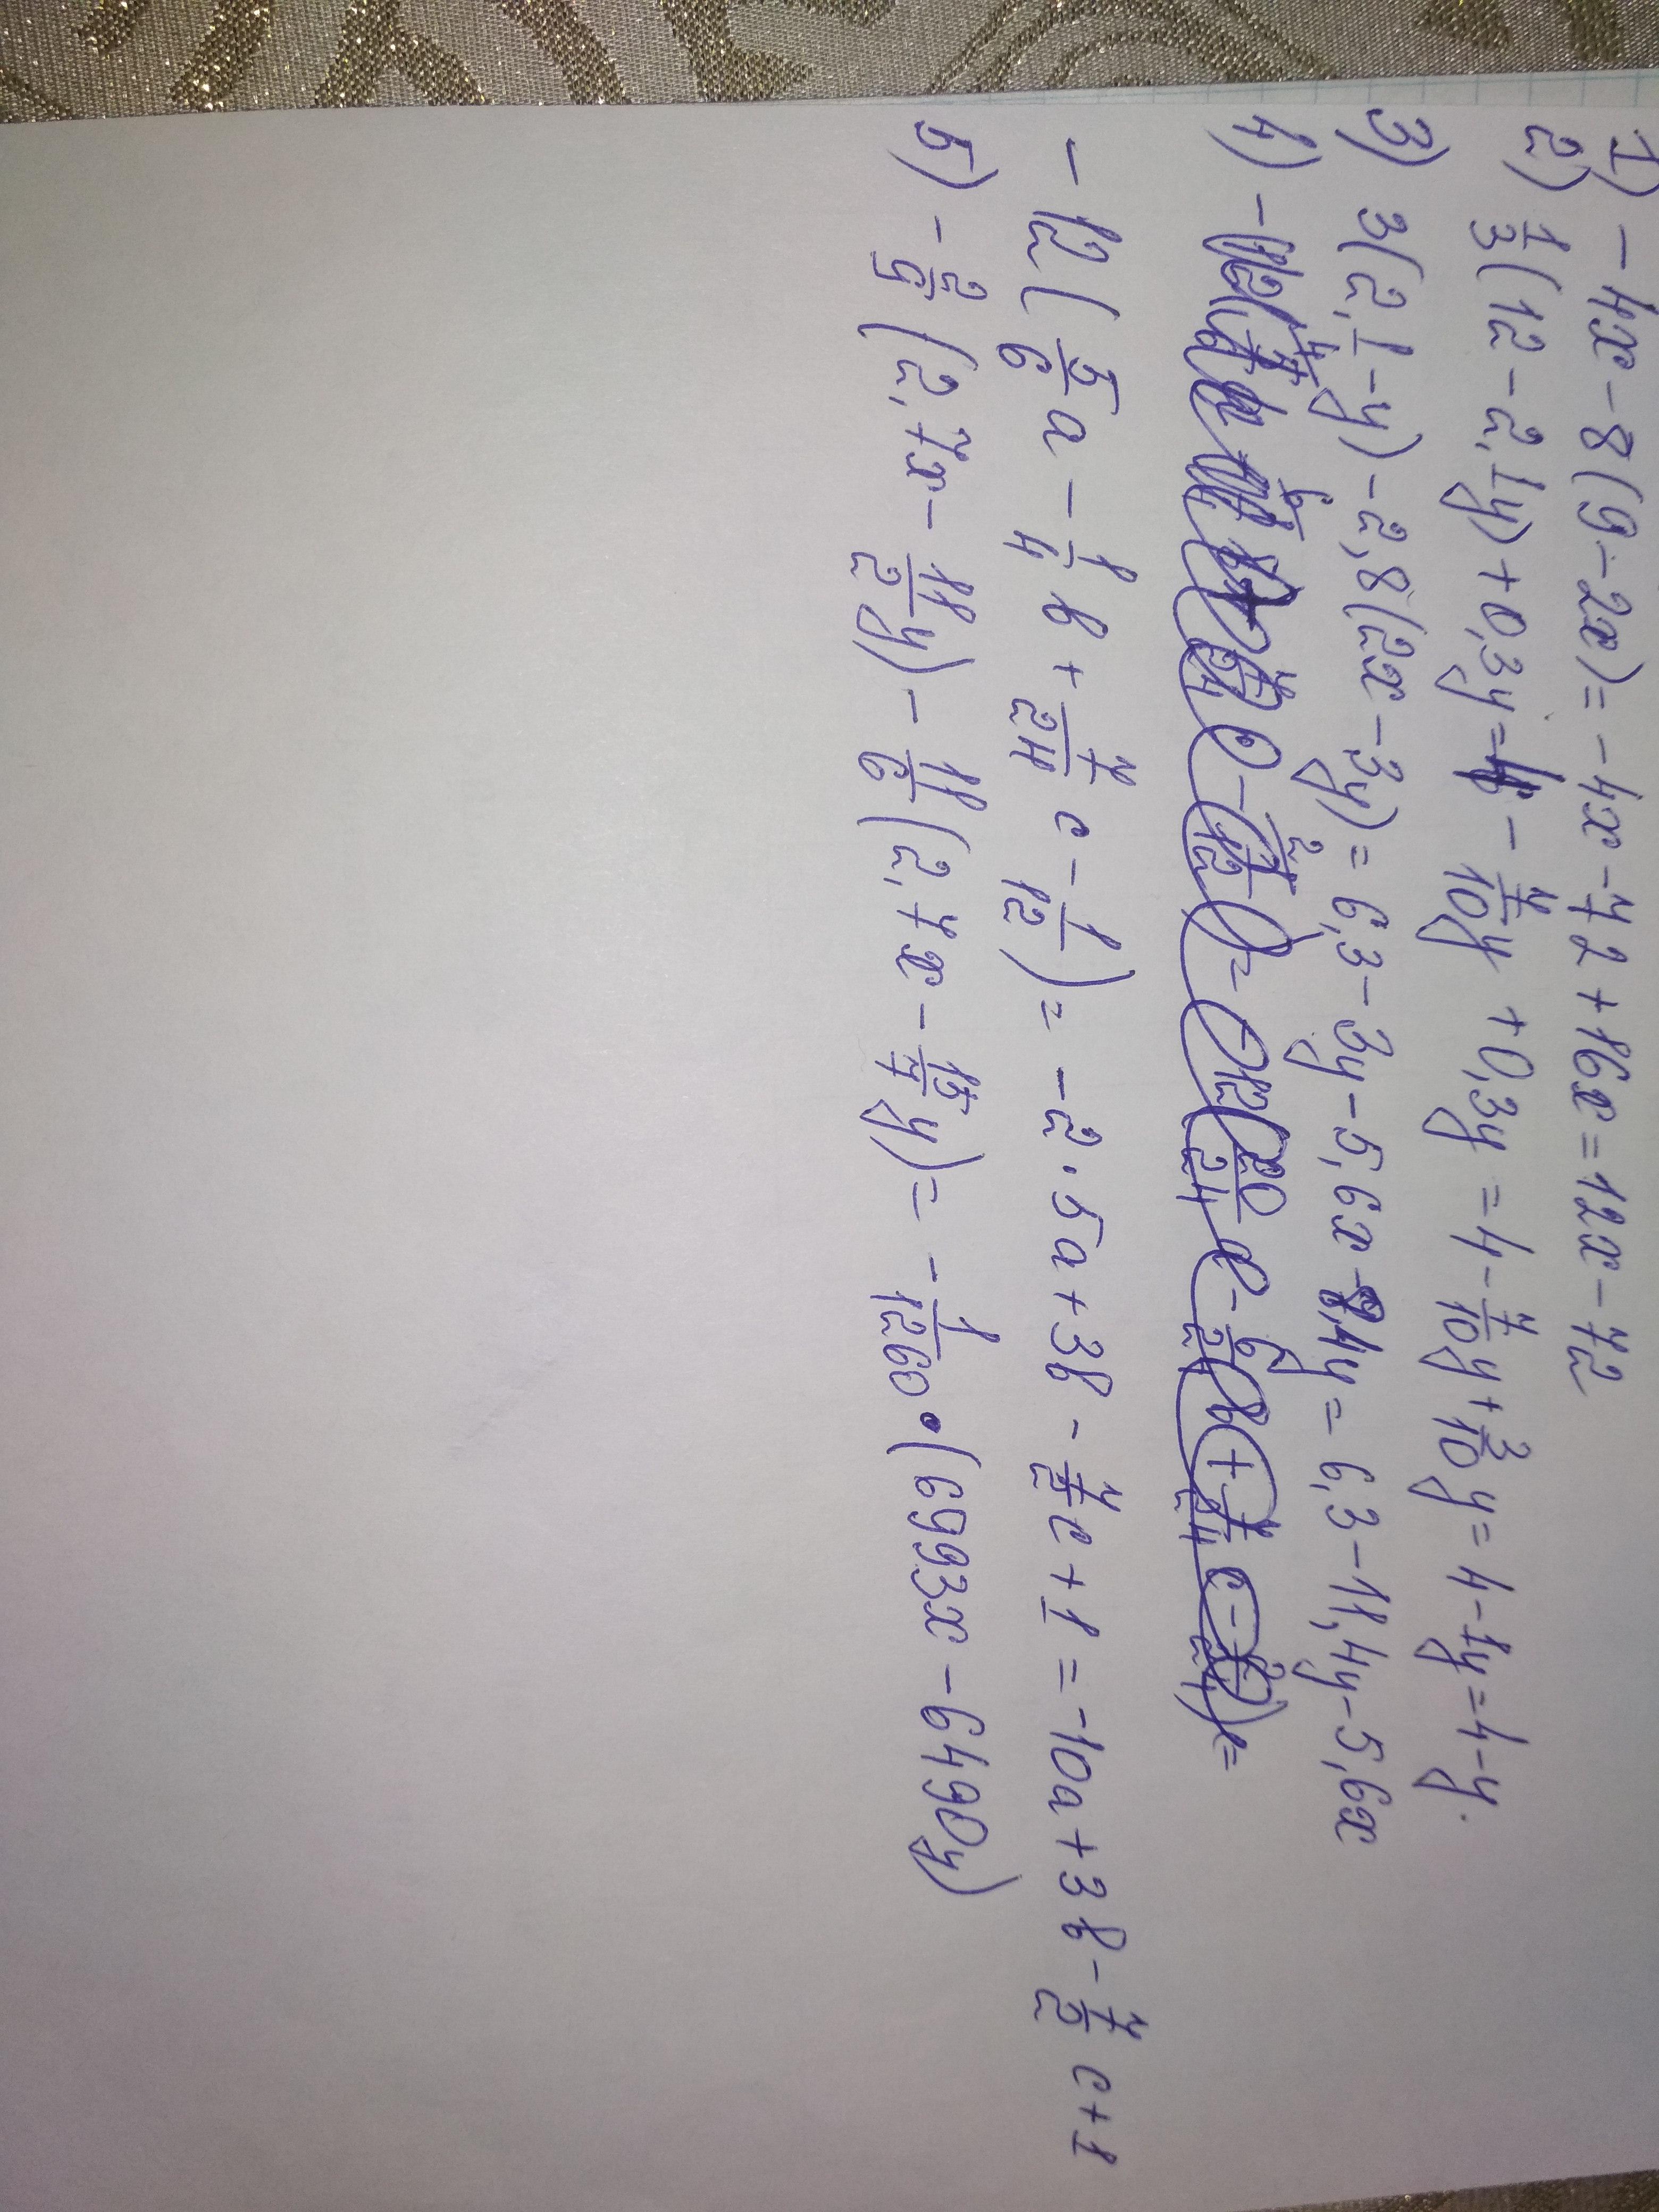 1) -4x-8(9-2x)=-4x-72+16x=12x-72
2) 1/3(12-2,1y)+0,3y=4-7/10y+0,3y=4-7/10y+3/10y=4-1y=4-y.
3) 3(2,1-y)-2,8(2x-3y)=6,3-3y-5,6x-8,4y=6,3-11,4y-5,6x
4) -
-12(5/6a-1/4b+7/24c-1/12)=-2·5a+3b-7/2c+1=-10a+3b-7/2c+1
5) -2/9(2,7x-11/2y)-11/6(2,7x-15/7y)=-1/1260·(6993x-6490y)